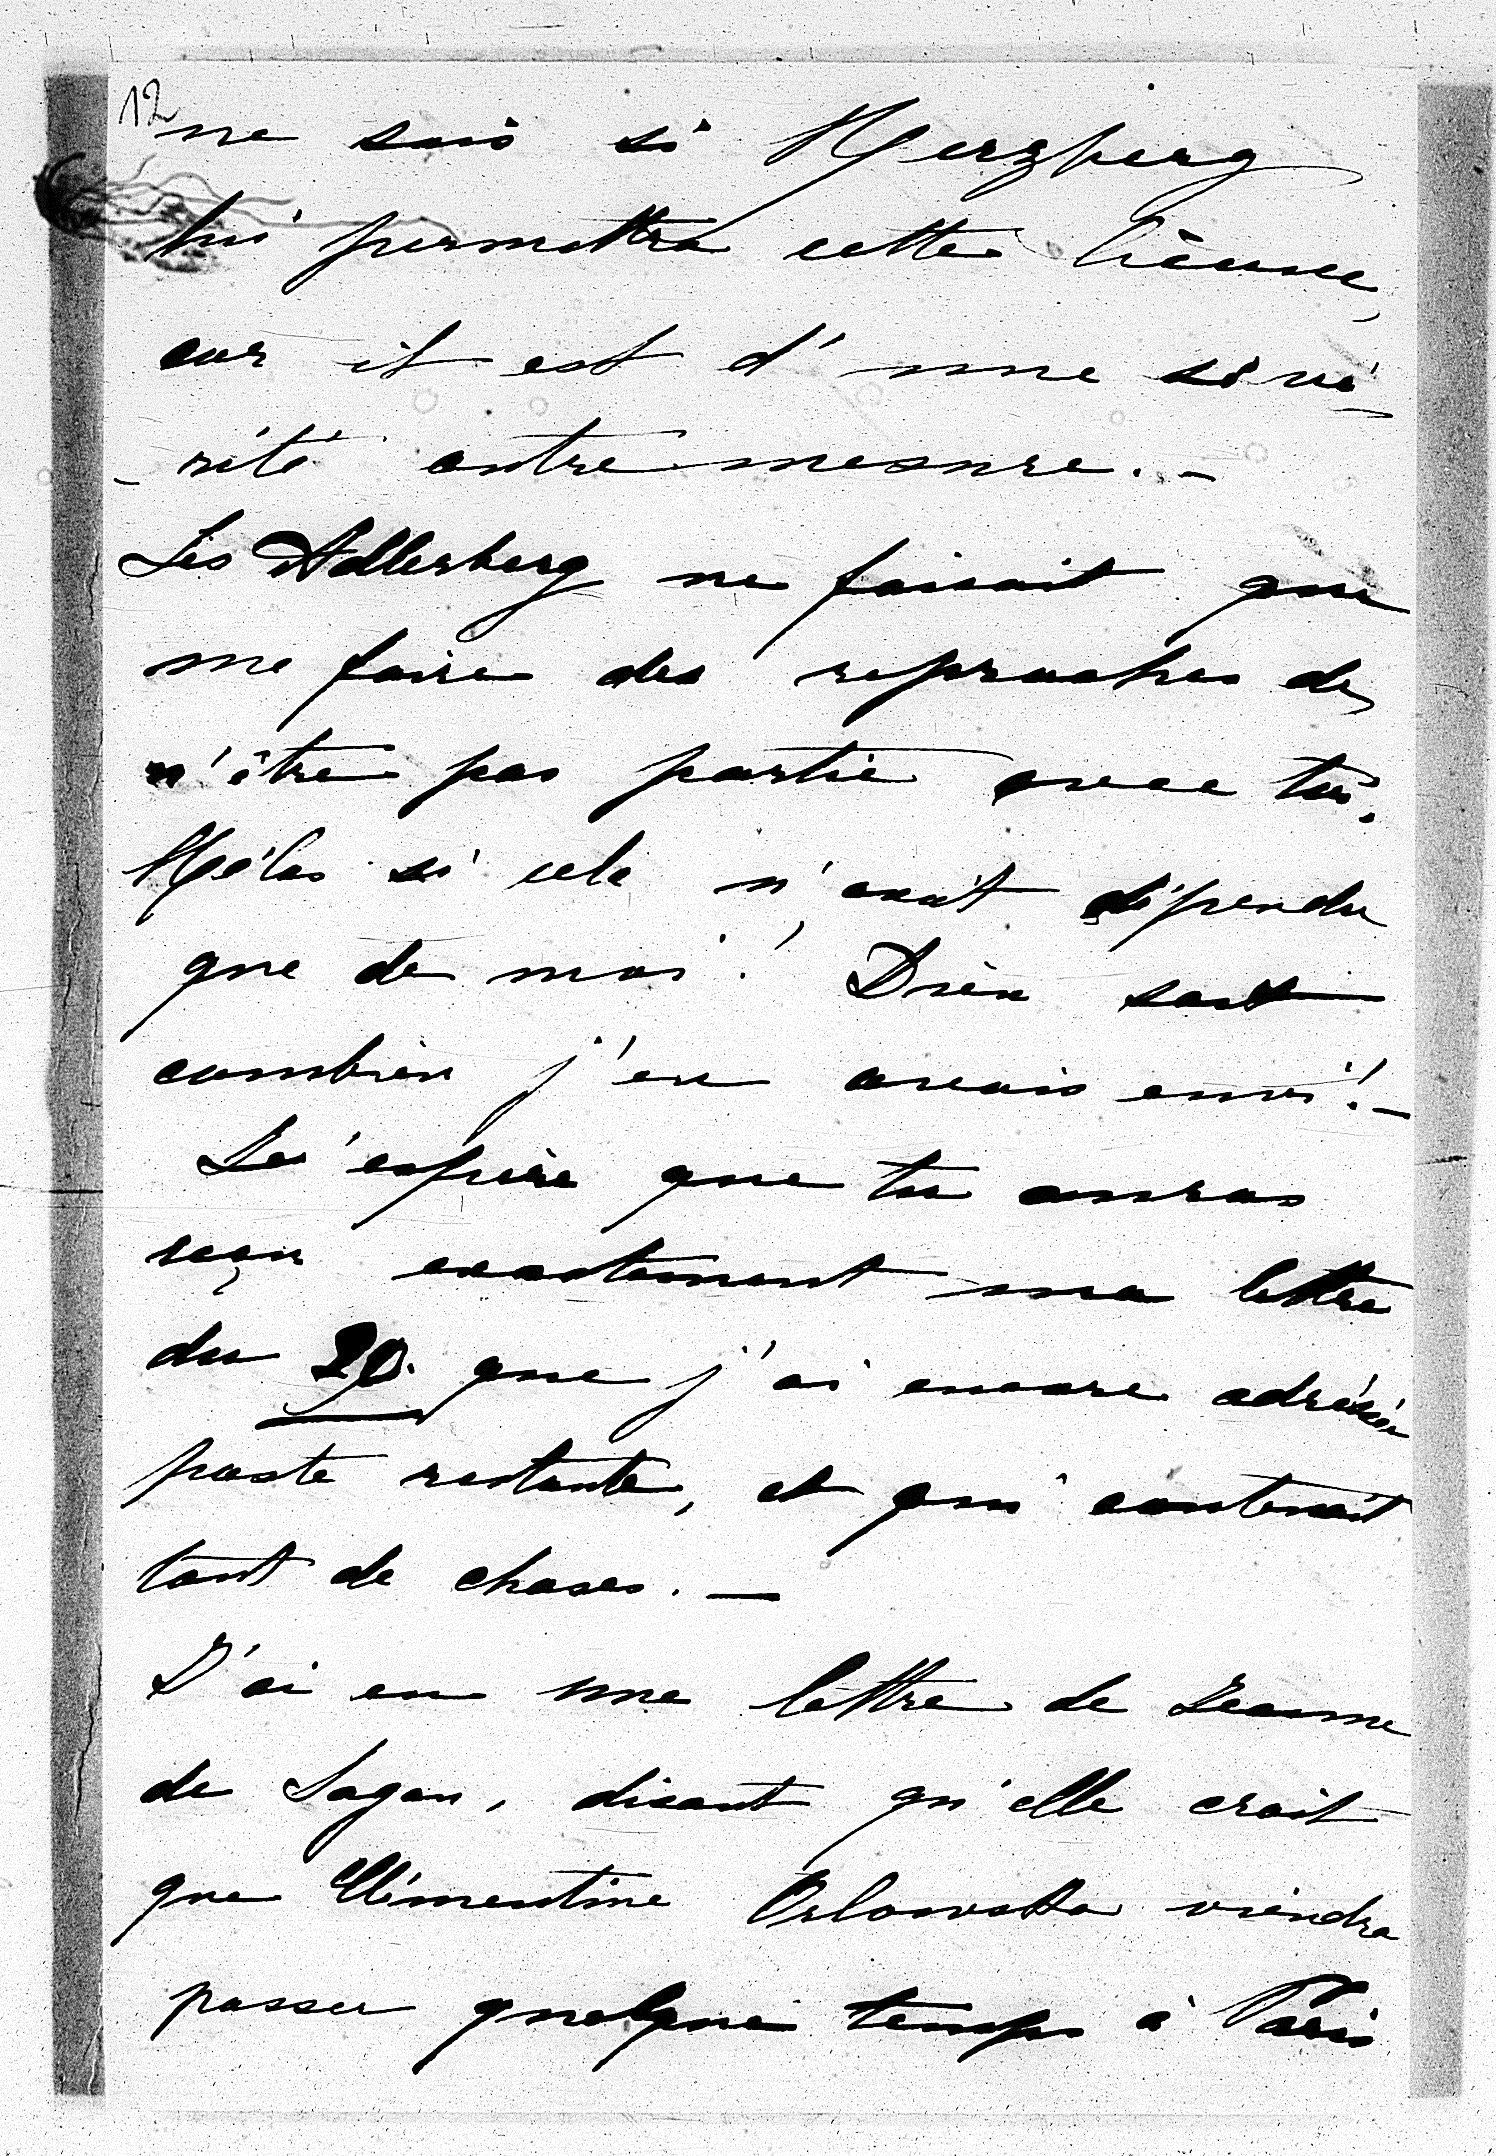 12
ne sais si Herzberg
lui permettra cette licence,
car il est d'une sévé-
-rité outre mesure. -
Les Adlerberg ne faisait que
me faire des reproches de
n'être pas partie avec toi.
Hélas si cela n'avait dépendu
que de moi! Dieu sait
combien j'en avais envi! -
J'espère que tu auras
reçu exactement ma lettre
du 20. que j'ai encore adréssée
poste restante, et qui contenait
tant de choses. -
J'ai eu une lettre de Jeanne
de Sagan, disant qu'elle croit
que Clémentine Orlowska viendra
passer quelque temps à Paris